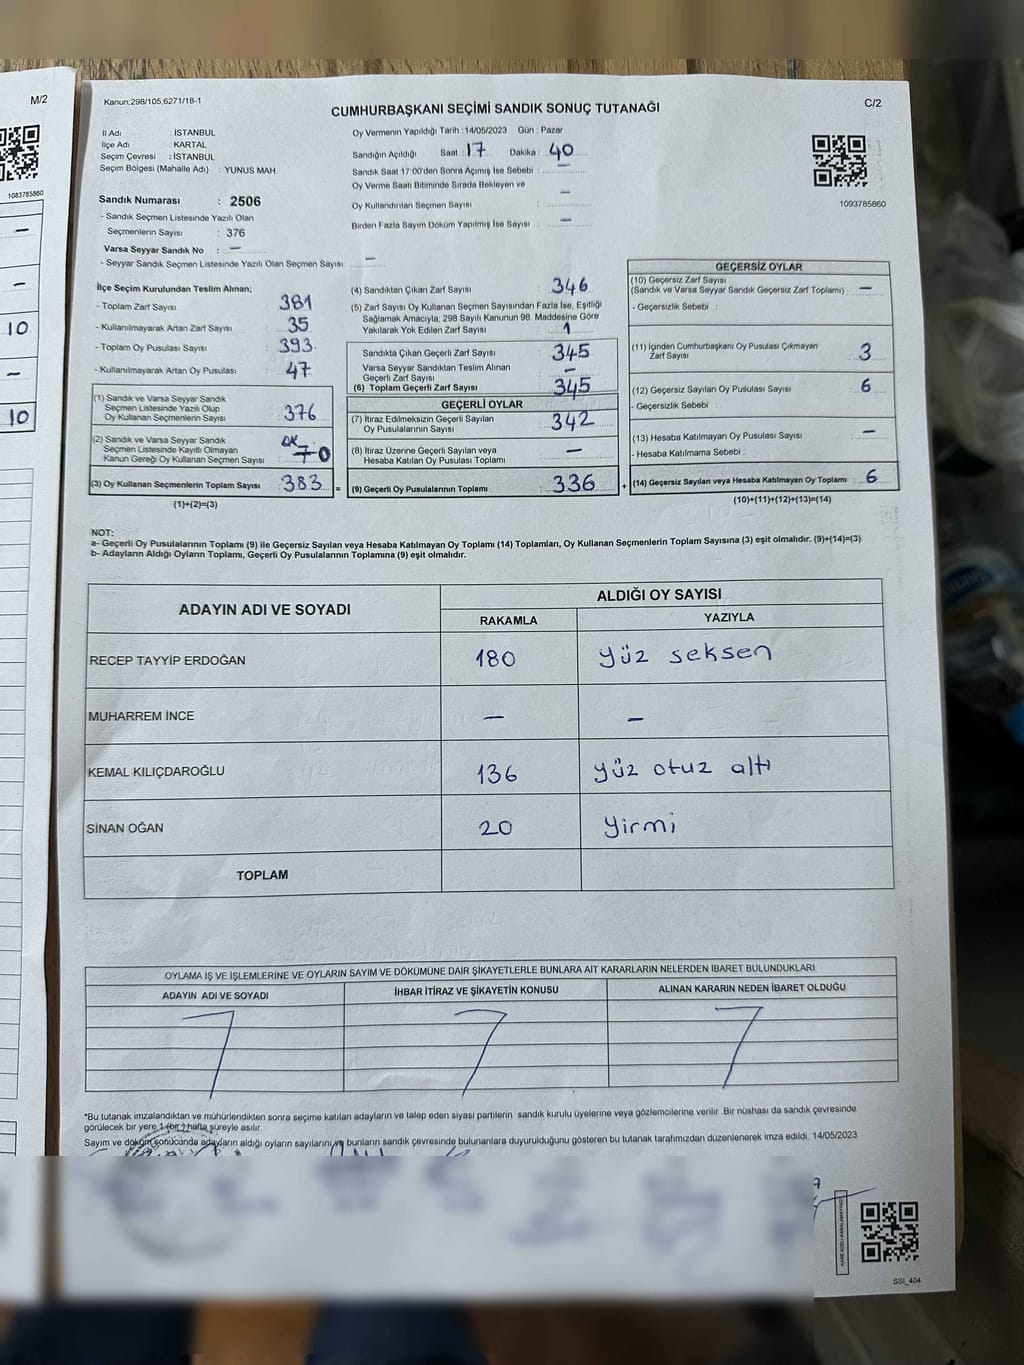 M/2
1083785860
—
—
10
—
10
Kanun;298/105,6271/18-1
CUMHURBAŞKANI SEÇİMİ SANDIK SONUÇ TUTANAĞI
C/2
İl Adı : İSTANBUL
İlçe Adı : KARTAL
Seçim Çevresi : İSTANBUL
Seçim Bölgesi (Mahalle Adı) : YUNUS MAH.
Sandık Numarası : 2506
- Sandık Seçmen Listesinde Yazılı Olan
Seçmenlerin Sayısı : 376
Varsa Seyyar Sandık No : —
- Seyyar Sandık Seçmen Listesinde Yazılı Olan Seçmen Sayısı: —
Oy Vermenin Yapıldığı Tarih :14/05/2023 Gün : Pazar
Sandığın Açıldığı Saat : 17 Dakika : 40
Sandık Saat 17:00'den Sonra Açımış İse Sebebi : —
Oy Verme Saati Bitiminde Sırada Bekleyen ve
Oy Kullandırılan Seçmen Sayısı : —
Birden Fazla Sayım Döküm Yapılmış İse Sayısı : —
1093785860
İlçe Seçim Kurulundan Teslim Alınan;
- Toplam Zarf Sayısı : 381
- Kullanılmayarak Artan Zarf Sayısı : 35
- Toplam Oy Pusulası Sayısı : 393
- Kullanılmayarak Artan Oy Pusulası : 47
(1) Sandık ve Varsa Seyyar Sandık
Seçmen Listesinde Yazılı Olup
Oy Kullanan Seçmenlerin Sayısı : 376
(2) Sandık ve Varsa Seyyar Sandık
Seçmen Listesinde Kayıtlı Olmayan
Kanun Gereği Oy Kullanan Seçmen Sayısı :
(3) Oy Kullanan Seçmenlerin Toplam Sayısı : 383 =
(1)+(2)=(3)
(4) Sandıktan Çıkan Zarf Sayısı : 346
(5) Zarf Sayısı Oy Kullanan Seçmen Sayısından Fazla İse, Eşitliği
Sağlamak Amacıyla, 298 Sayılı Kanunun 98. Maddesine Göre
Yakılarak Yok Edilen Zarf Sayısı : 1
Sandıkta Çıkan Geçerli Zarf Sayısı : 345
Varsa Seyyar Sandıktan Teslim Alınan
Geçerli Zarf Sayısı : —
(6) Toplam Geçerli Zarf Sayısı : 345
GEÇERLİ OYLAR
(7) İtiraz Edilmeksizin Geçerli Sayılan
Oy Pusulalarının Sayısı : 342
(8) İtiraz Üzerine Geçerli Sayılan veya
Hesaba Katılan Oy Pusulası Toplamı : —
(9) Geçerli Oy Pusulalarının Toplamı : 336 +
GEÇERSİZ OYLAR
(10) Geçersiz Zarf Sayısı
(Sandık ve Varsa Seyyar Sandık Geçersiz Zarf Toplamı) : —
- Geçersizlik Sebebi :
(11) İçinden Cumhurbaşkanı Oy Pusulası Çıkmayan
Zarf Sayısı : 3
(12) Geçersiz Sayılan Oy Pusulası Sayısı : 6
- Geçersizlik Sebebi :
(13) Hesaba Katılmayan Oy Pusulası Sayısı : —
- Hesaba Katılmama Sebebi :
(14) Geçersiz Sayılan veya Hesaba Katılmayan Oy Toplamı : 6
(10)+(11)+(12)+(13)=(14)
NOT:
a- Geçerli Oy Pusulalarının Toplamı (9) ile Geçersiz Sayılan veya Hesaba Katılmayan Oy Toplamı (14) Toplamları, Oy Kullanan Seçmenlerin Toplam Sayısına (3) eşit olmalıdır. (9)+(14)=(3)
b- Adayların Aldığı Oyların Toplamı, Geçerli Oy Pusulalarının Toplamına (9) eşit olmalıdır.
ADAYIN ADI VE SOYADI
ALDIĞI OY SAYISI
RAKAMLA YAZIYLA
RECEP TAYYİP ERDOĞAN 180 yüz seksen
MUHARREM İNCE — —
KEMAL KILIÇDAROĞLU 136 yüz otuz altı
SİNAN OĞAN 20 yirmi
TOPLAM
OYLAMA İŞ VE İŞLEMLERİNE VE OYLARIN SAYIM VE DÖKÜMÜNE DAİR ŞİKAYETLERLE BUNLARA AİT KARARLARIN NELERDEN İBARET BULUNDUKLARI
ADAYIN ADI VE SOYADI İHBAR İTİRAZ VE ŞİKAYETİN KONUSU ALINAN KARARIN NEDEN İBARET OLDUĞU
*Bu tutanak imzalandıktan ve mühürlendikten sonra seçime katılan adayların ve talep eden siyasi partilerin sandık kurulu üyelerine veya gözlemcilerine verilir .Bir nüshası da sandık çevresinde
görülecek bir yere 1 (bir) hafta süreyle asılır.
Sayım ve döküm sonucanda adayların aldığı oyların sayılarını ve bunların sandık çevresinde bulunanlara duyurulduğunu gösteren bu tutanak tarafımızdan düzenlenerek imza edildi. 14/05/2023
SSI_404